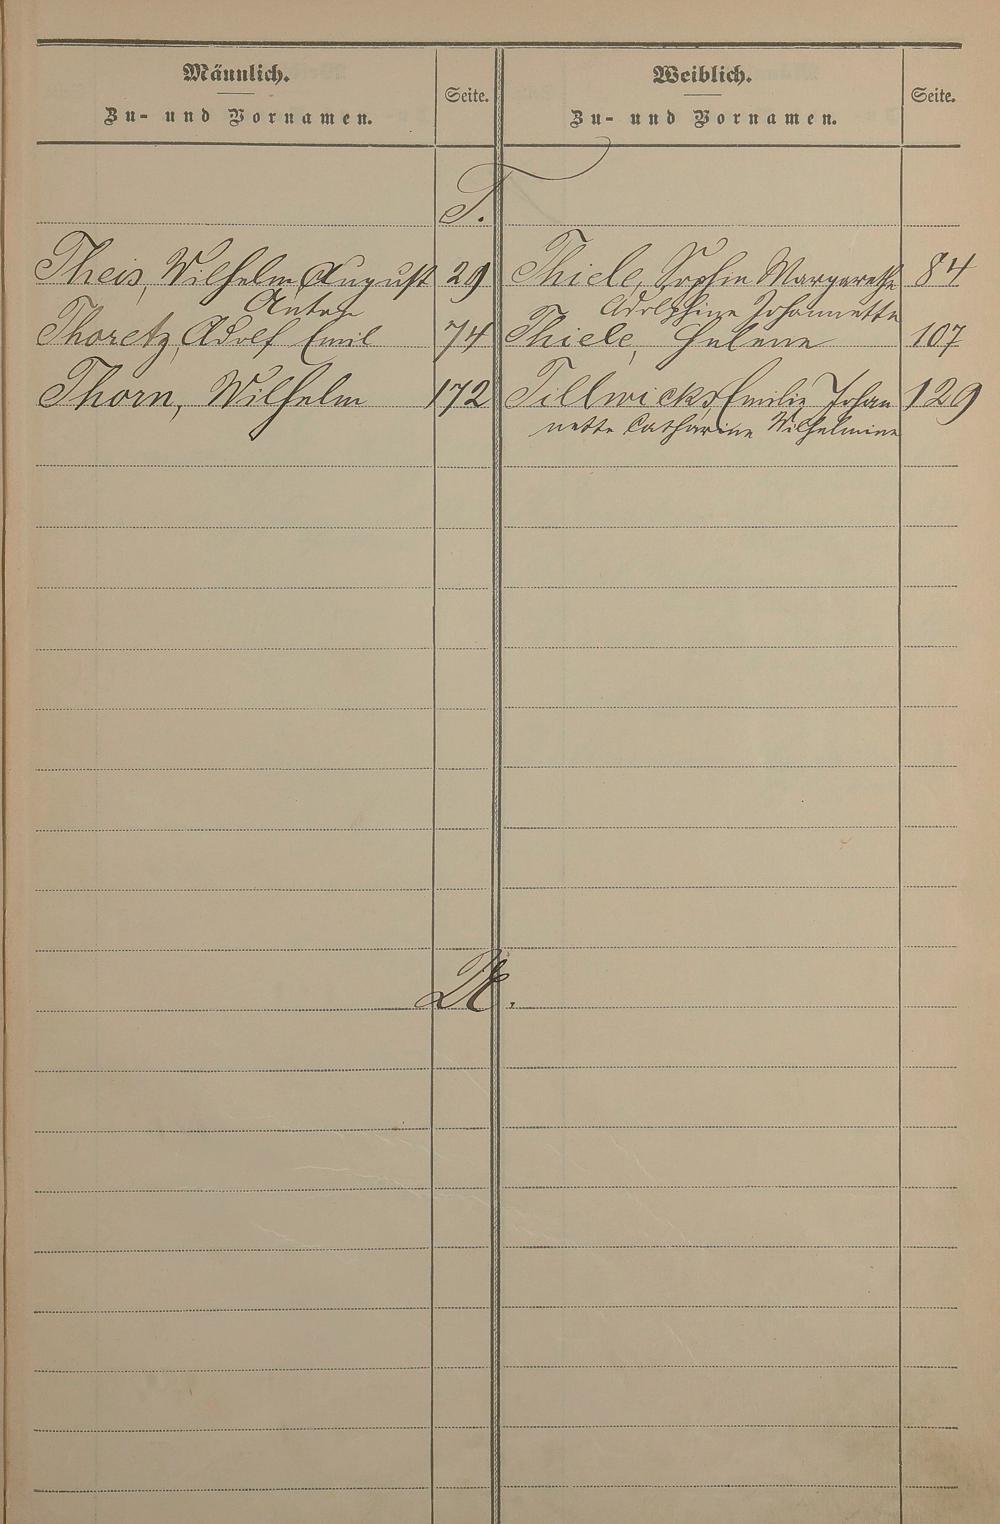 Männlich.
Zu- und Vornamen.
Seite.
Weiblich.
Zu- und Vornamen.
Seite.
T.
Theis, Wilhelm August 29
Anton
Thoretz, Adolf Emil 74
Thorn, Wilhelm 172
Thiele, Sophie Margarethe 84
Adolphine Johannette
Thiele, Helene 107
Tillwicks, Emilie Johan 129
nette Catharine Wilhelmine
U.